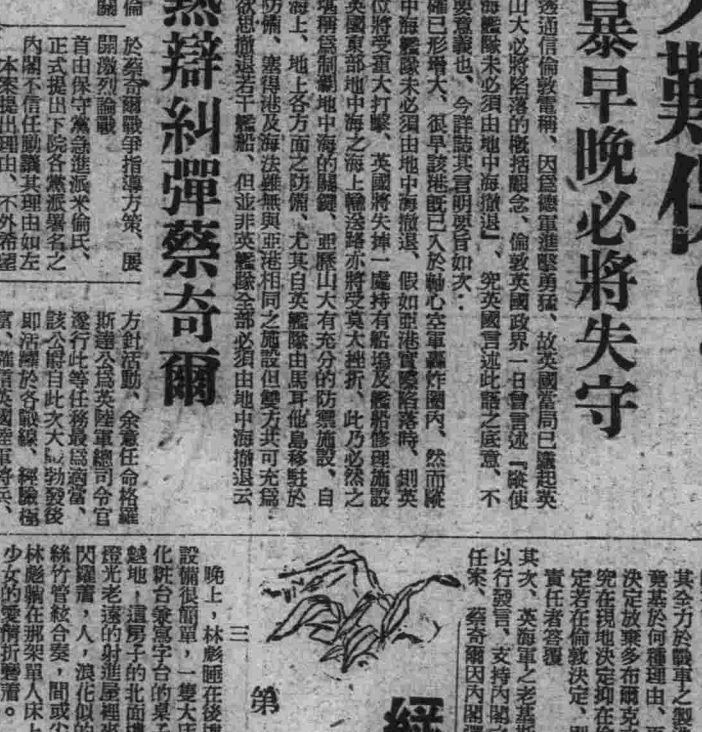 難保
暴早晚必將失守
透通信倫敦電稱、因為德軍進擊勇猛、故英國當局已
山大必將陷落的概括觀念、倫敦英國政界一日曾言述『縱使
海艦隊未必須由地中海撤退』、究英國言述此語之底意、不
要意義也、今詳誌其言明要旨如次：
確已形增大、很早該港既已入於軸心空軍轟炸圈內、然而縱
中海艦隊未必須由地中海撤退、假如亞港實際陷落時、則英
位將受重大打擊、英國將失掉一處持有船塢及艦船修理施設
英國東部地中海之海上輸送路亦將受莫大挫折、此乃必然之
堪稱為制霸地中海的關鍵、亞歷山大有充分的防禦施設、自
海上、地上各方面之防備、尤其自英艦隊由馬耳他島移駐於
防備、塞得港及海法雖無與亞港相同之施設但雙方共可充為
欲思撤退若干艦船、但並非英艦隊全部必須由地中海撤退云
熱辯糾彈蔡奇爾
於蔡奇爾戰爭指導方策、展
開激烈論戰
首由保守黨急進派米倫氏、
正式提出下院各黨派署名之
內閣不信任動議其理由如左
本案提出理由、不外希望
方針活動、余意任命格羅
斯達公為英陸軍總司令官
遂行此等任務最為適當、
該公爵自此次大戰勃發後
即活躍於各戰線、經驗極
富、確信英國陸軍將兵、
其全力於戰車之製造
竟基於何種理由、而
決定放棄多布爾克
究在現地決定抑在倫
定若在倫敦決定、則
實任者答覆
其次、英海軍之老基斯
以行發言、支持內閣之
任案、蔡奇爾因內閣
經
第
三
晚上，林彪睡在後樓
設備很簡單，一隻大床
化粧台兼寫字台的桌子
越地，這房子的北面樓
燈光老遠的射進屋裡來
閃耀着，人，浪花似的
絲竹管絃合奏，間或
林彪躺在那架單人床上
少女的愛情折磨着。